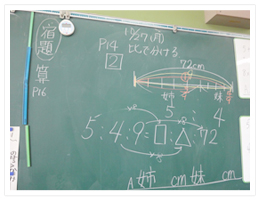 宿題
算
P16
12/7(月)
P14 比で分ける
2
72cm
姉 妹
5 : 4
5:4:9=□:△:72
A 姉 cm 妹 cm